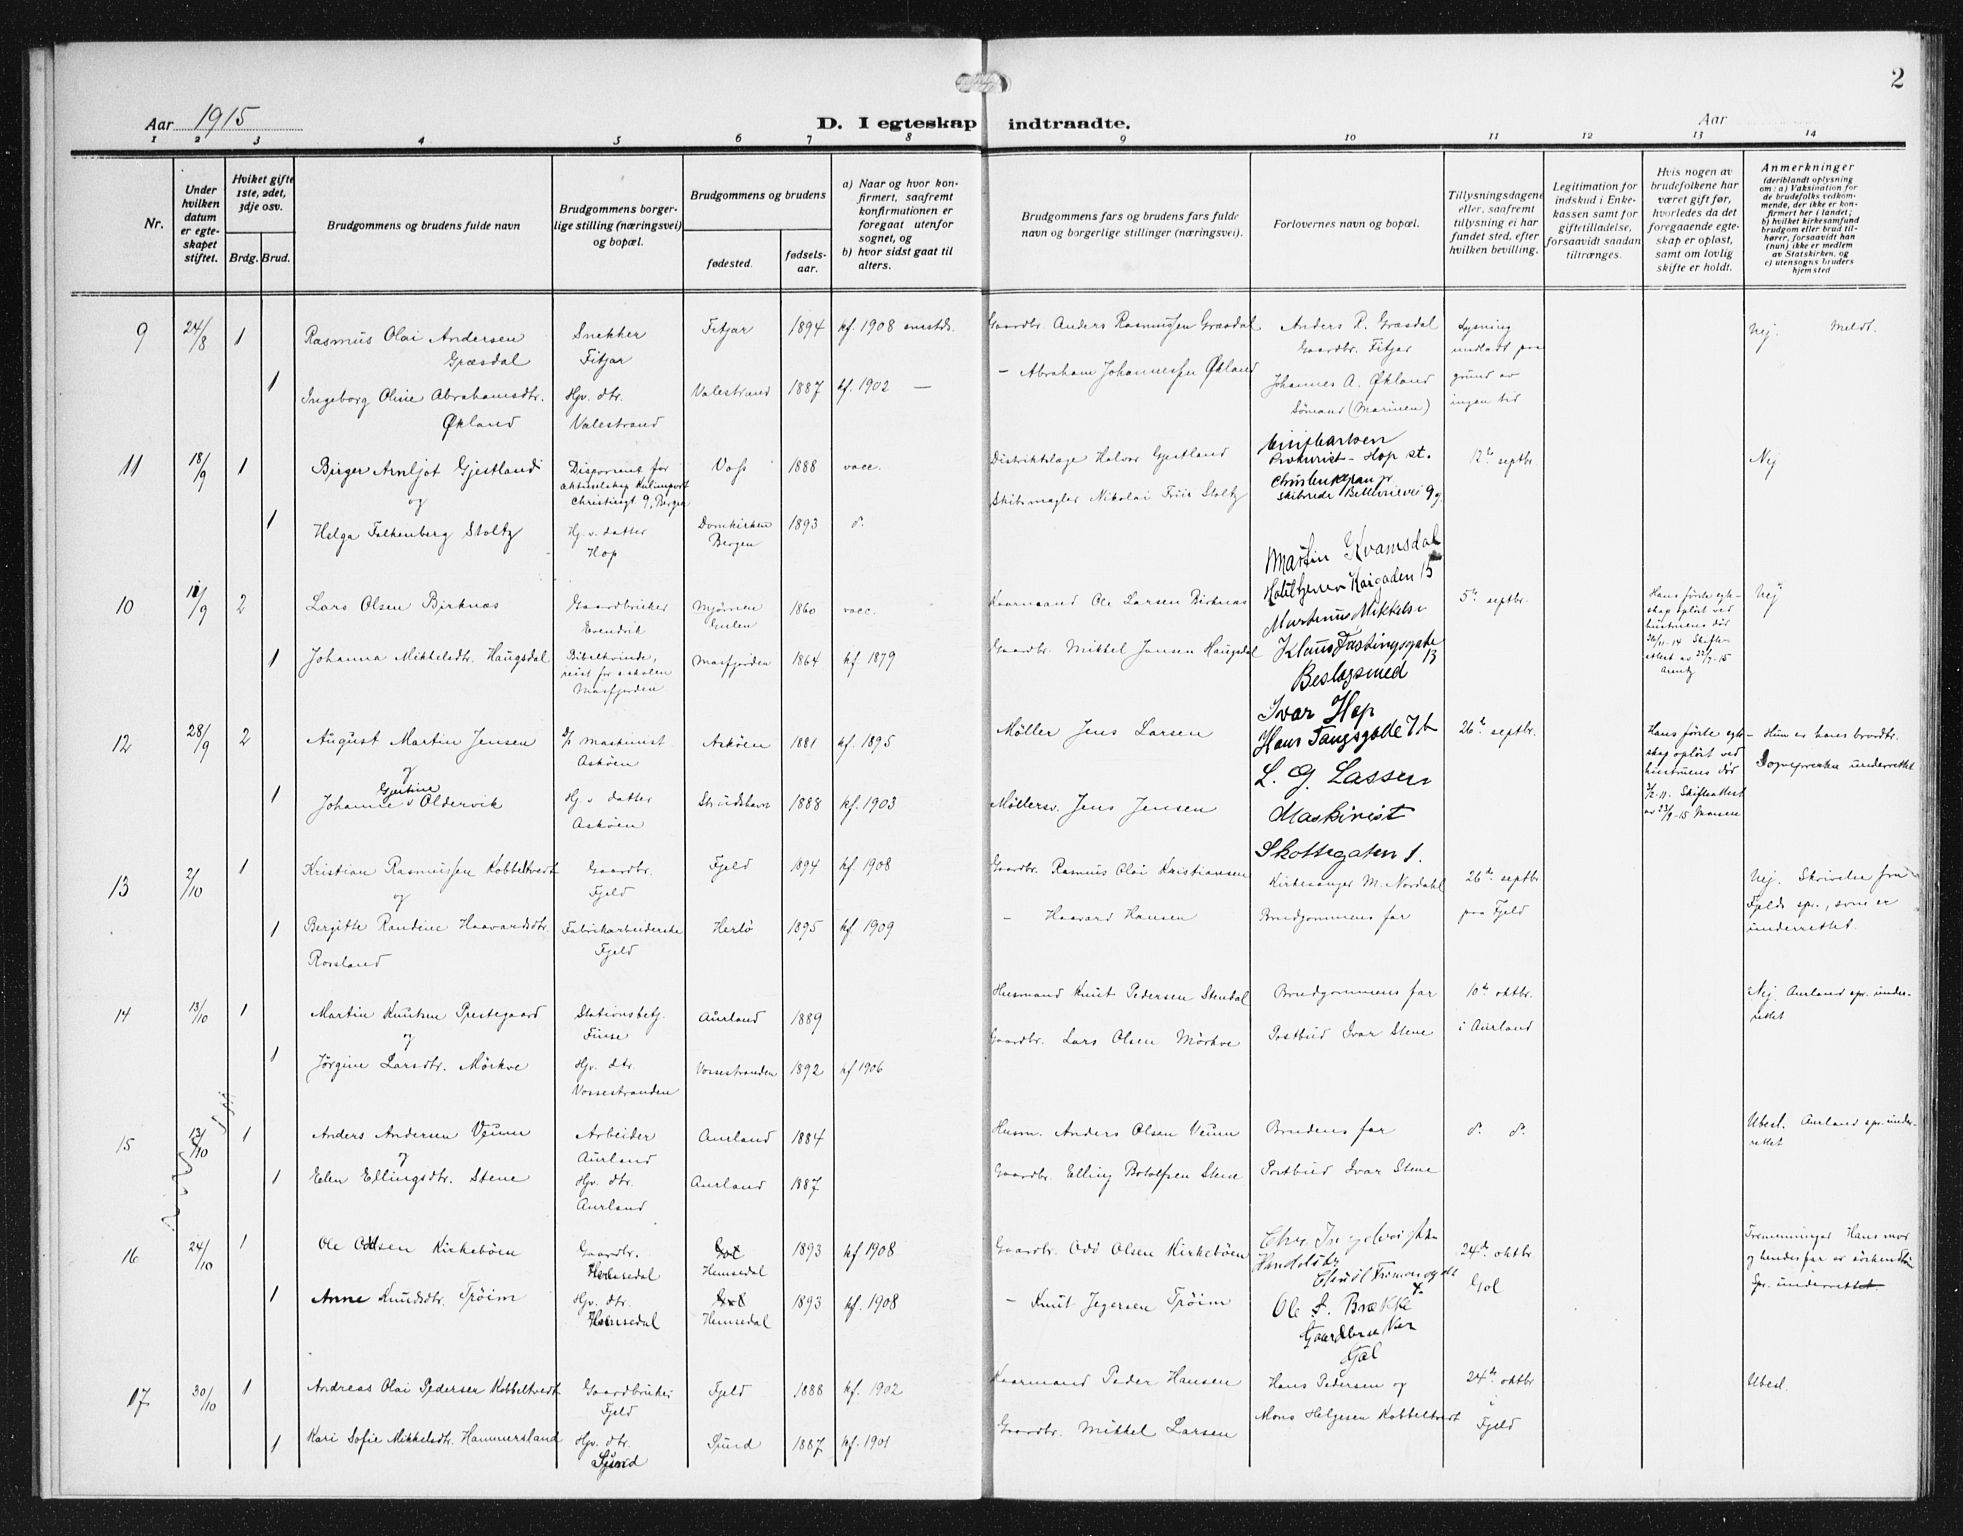 2
Aar 1915
D. I egteskap indtraadte.
Aar
1 2 3 4 5 6 7 8 9 10 11 12 13 14
Nr.
Under hvilken datum er egteskapet stiftet.
Hviket gifte 1ste, 2det, 3dje osv.
Brdg. Brud.
Brudgommens og brudens fulde navn
Brudgommens borgerlige stilling (næringsvei) og bopæl.
Brudgommens og brudens
fødested.
fødselsaar.
a) Naar og hvor konfirmert, saafremt konfirmationen er foregaat utenfor sognet, og
b) hvor sidst gaat til alters.
Brudgommens fars og brudens fars fulde navn og borgerlige stillinger (næringsvei).
Forlovernes navn og bopæl.
Tillysningsdagene eller, saafremt tillysning ei har fundet sted, efter hvilken bevilling.
Legitimation for indskud i Enkekassen samt for giftetilladelse, forsaavidt saadan tiltrænges.
Hvis nogen av brudefolkene har været gift før, hvorledes da det foregaaende egteskap er opløst, samt om lovlig skifte er holdt.
Anmerkninger (deriblandt oplysning om: a) Vaksination for de brudefolks vedkommende, der ikke er konfirmert her i landet; b) hvilket kirkesamfund brudgom eller brud tilhører, forsaavidt han (hun) ikke er medlem av Statskirken, og c) utensogns bruders hjemsted
9 24/8 1 Rasmus Olai Andersen Græsdal Snekker Fitjar Fitjar 1894 kf. 1908 Gaardbr. Anders Rasmussen Græsdal Anders R. Græsdal Gaardbr. Fitjar Lysning undladt paa grund av ingen tid Nej. Meldt.
1 Ingeborg Oline Abrahamsdtr. Økland Hjv. dtr. Valestrand Valestrand 1887 kf. 1902 — – Abraham Johannessen Økland Johannes A. Økland Sømand (Marinen)
11 18/9 1 Birger Arnljot Gjestland og Disponent for aktieselskap Christiesgt 9, Bergen Voss 1888 vacc. Distriktslæge Halvor Gjestland Prokurist – Hop st. 12te septbr. Nej
1 Helga Falkenberg Stoltz Hj. v. datter Hop Domkirken Bergen 1893 d. Skibsmægler Nikolai Friis Stoltz
10 2 Lars Olsen Birknæs Gaardbruker Evendvik Gulen 1860 vacc. Kaarmand Ole Larsen Birknæs Martin Kvamsdal Kaigaden 15 5te septbr. Hans første egteskap opløst ved hustruens død Nej
1 Johanna Mikkelsdtr. Haugsdal Bibelkvinde, Masfjorden Masfjorden 1864 kf 1879 Gaardbr. Mikkel Jansen Haugsdal Beslagsmed 13
12 28/9 2 August Martin Jensen og Maskinist Askøen Askøen 1881 kf. 1895 Møller Jens Larsen Ivar Hop Hans Tangsgade 7b 26te septbr. Hans første egteskap opløst ved hustruens død 3/2-11. Skifteattest av 23/9-15 – Hun er hans Sognepresten underrettet
1 Johanne Gjertine Oldervik Hj. v. datter Askøen 1888 kf. 1903 Jens Jensen L. G. Lassen Maskinist Skottegaten 1.
13 2/10 1 Kristian Rasmussen Kobbeltvedt og Gaardbr. Fjeld Fjeld 1894 kf. 1908 Gaardbr. Rasmus Olai Kristiansen Kirkesanger M. Nordahl 26te septbr paa Fjeld Nej. Skrivelse fra Fjelds spr., som er underrettet.
1 Bergitte Randine Haavardsdtr. Rossland Fabrikarbeiderske Fjeld Herlø 1895 kf. 1909 – Haavard Hansen Brudgommens far
14 13/10 1 Martin Knutsen Prestegaard og Stationsbetj. Finse Aurland 1889 Husmand Knut Pedersen Stendal Brudgommens far 10de oktbr. i Aurland Nej. Aurland spr. underrettet
1 Jørgine Larsdtr. Mörkve Hjv. dtr. Vossestranden Vossestranden 1892 kf 1906 Gaardbr. Lars Olsen Mörkve Postbud Ivar Stene
15 13/10 1 Anders Andersen Veum og Arbeider Aurland Aurland 1884 Husm. Anders Olsen Veum Brudens far d. d. Ubesl. Aurland spr. underrettet
1 Elen Ellingsdtr. Stene Hjv. dtr. Aurland Aurland 1887 Gaardbr. Elling Botolfsen Stene Postbud Ivar Stene
16 24/10 1 Ole Oddsen Kirkebøen Gaardbr. Hemsedal Gol Hemsedal 1893 kf. 1908 Gaardbr. Odd Olsen Kirkebøen 24de oktbr Gol Tremenninger Hans mor og hendes far er søskendebørn Spr. underrettet.
1 Anne Knudsdtr. Trøim Hjv. dtr. Hemsedal Gol Hemsedal 1893 kf. 1908 – Knut Jegersen Trøim Ole Brække Gaardbruker Gol
17 30/10 1 Andreas Olai Pedersen Kobbeltvedt Gaardbruker Fjeld Fjeld 1888 kf. 1902 Kaarmand Peder Hansen Hans Pedersen og 24de oktbr i Fjeld Ubesl.
1 Kari Sofie Mikkelsdtr. Hammersland Hjv. dtr. Sund Sund 1887 kf. 1901 Gaardbr. Mikkel Larsen Mons Helgesen Kobbeltvedt